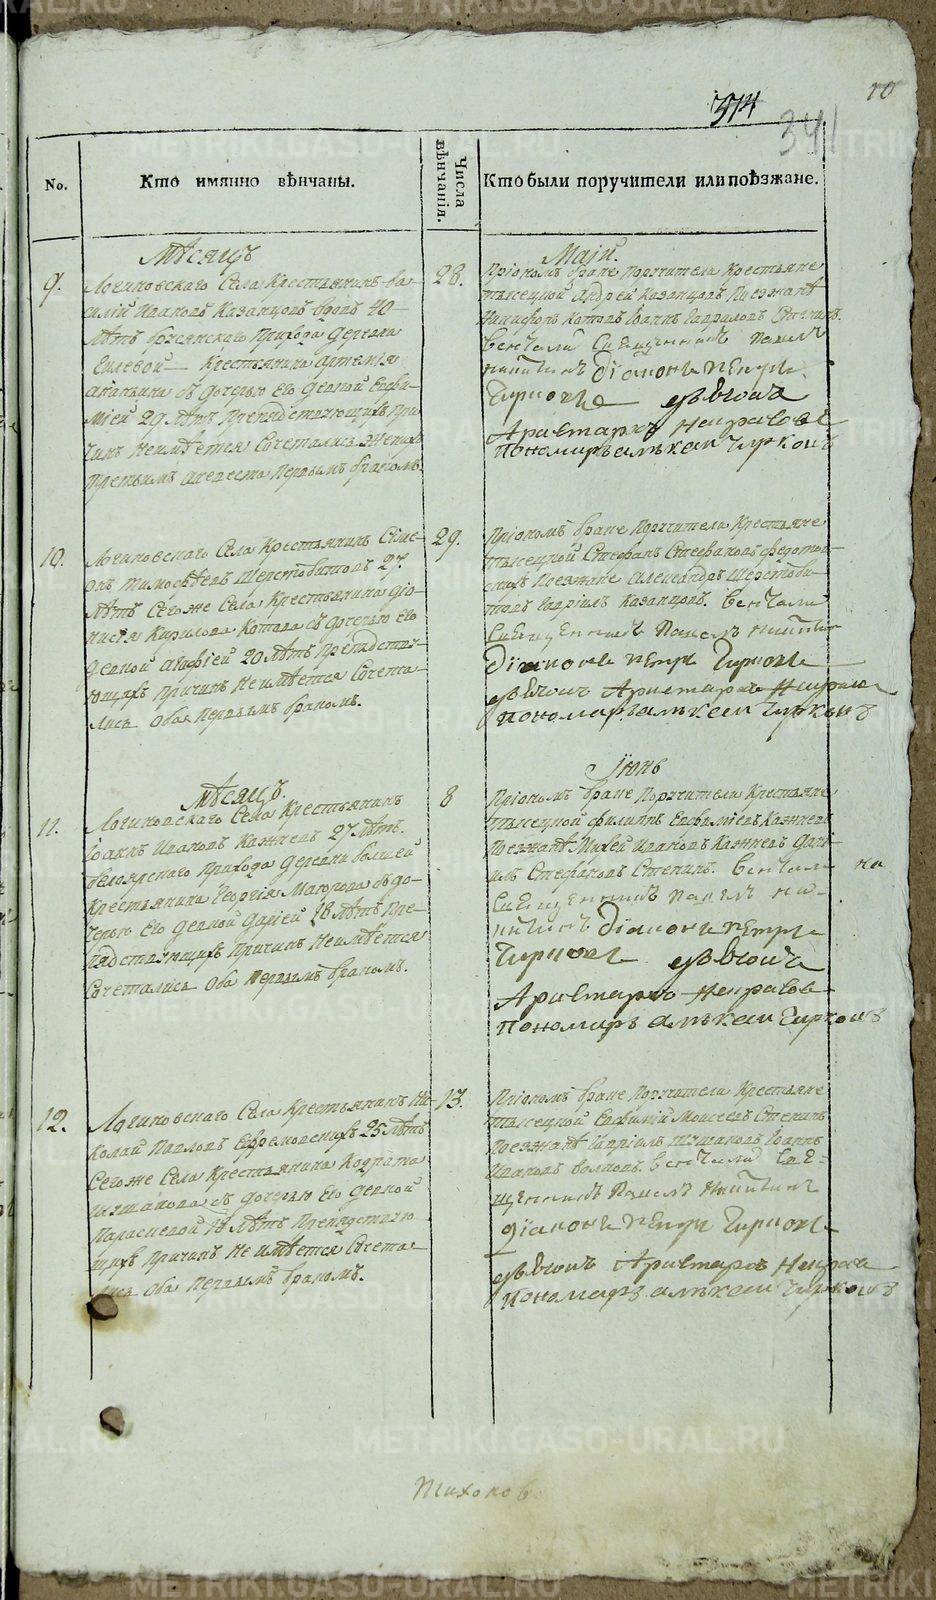 10
514
341
No.
Кто имянно вѣнчаны.
Числа вѣнчанія.
Кто были поручители или поѣзжане.
Мѣсяцъ
Маій.
9.
Логиновскаго Села Крестьянинъ Ва-
силій Ивановъ Казанцовъ вдовъ 40
лѣтъ Прихода деревни
Крестьянина Артемія
съ дочерью его девкой Евфи-
міей 29 лѣтъ Препядствующихъ При-
чинъ Неимѣется Сочетались Женихъ
третьимъ Аневеста Первымъ бракомъ.
28.
Приономъ браке Поручители Крестьяне
Андрей Казанцовъ Поезжанѣ
Никифоръ Котовъ Іоаннъ Гавриловъ
венчали Священникъ Павелъ
Никитинъ Діаконъ Петръ
Чирковъ дьячокъ
Аристархъ Некрасовъ
Пономарь Алѣксѣй Чирковъ
10.
Логиновскаго Села Крестьянинъ Симе-
онъ Тимофѣевъ Шерстобитовъ 27.
лѣтъ Сегоже Села Крестьянина Діо-
нисія Кирилова Котова съ дочерью его
девкой Агафіей 20 лѣтъ Препядству-
ющихъ Причинъ Неимѣется Сочета-
лись Оба Первымъ бракомъ.
29.
Приономъ браке Поручители Крестьяне
Стефанъ Стефановъ
Поезжане Александръ Шерстоби-
товъ Гавріилъ Казанцовъ. венчали
Священникъ Павелъ Никитинъ
Діаконъ Петръ Чирковъ
дьячокъ Аристархъ Некрасовъ
Пономарь Алѣксѣй Чирковъ
Мѣсяцъ.
Іюнь
11.
Логиновскаго Села Крестьянинъ
Іоаннъ Ивановъ 27 лѣтъ.
Белоярскаго Прихода деревни
Крестьянина Георгія съ до-
черью Его девкой Даріей 18 лѣтъ Пре-
пядствующихъ Причинъ Неимѣется
Сочетались Оба Первымъ бракомъ.
8
Приономъ браке Поручители Крестьяне
Филиппъ Евфиміевъ
Поезжанѣ Михей Ивановъ Дани-
илъ Стефановъ венчали
Священникъ Павелъ Ни-
китинъ Діаконъ Петръ
Чирковъ дьячокъ
Аристархъ Некрасовъ
Пономарь Алѣксѣй Чирковъ
12.
Логиновскаго Села Крестьянинъ Ни-
колай Павловъ Ефремовскихъ 25 лѣтъ
Сегоже Села Крестьянина Кодрата
съ дочерью Его девкой
Параскевой 18 лѣтъ Препядствую-
щихъ Причинъ Не имѣется Сочета-
лись Оба Первымъ бракомъ.
13.
Приономъ браке Поручители Крестьяне
Евфимій Моисеевъ
Поезжанѣ Гавріилъ Іоаннъ
Ивановъ венчали Свя-
щенникъ Павелъ Никитинъ
діаконъ Петръ Чирковъ
дьячокъ Аристархъ Некрасовъ
Пономарь Алѣксѣй Чирковъ
Тихонов
METRIKI.GASO-URAL.RU